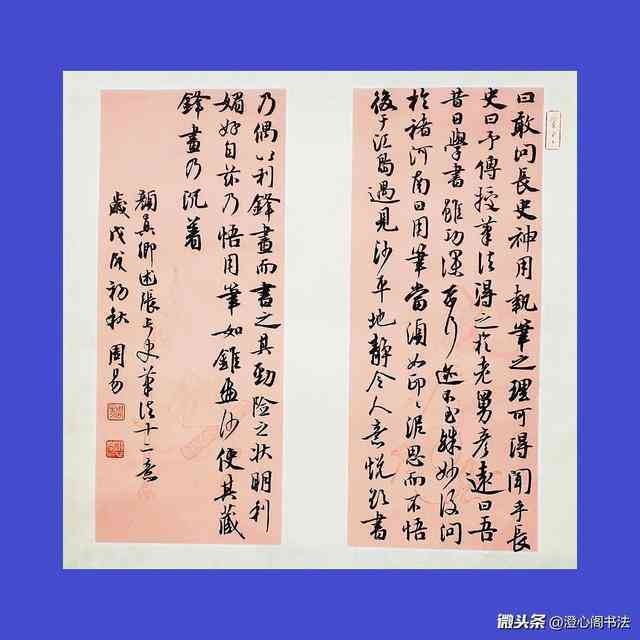 曰敢问長史神用執筆之理可得聞乎長
史曰予傳授筆法得之於老舅彦遠曰吾
昔日學書雖功深奈何迹不至殊妙後问
於褚河南曰用筆當須如印〻泥思而不悟
後于江島遇見沙平地静令人意悦欲書
乃偶以利鋒畫而書之其勁险之状明利
媚好自兹乃悟用筆如錐畫沙使其藏
鋒畫乃沉着
顏真卿述張長史筆法十二意
歲戊戌初秋 周易
微头条@澄心阁书法